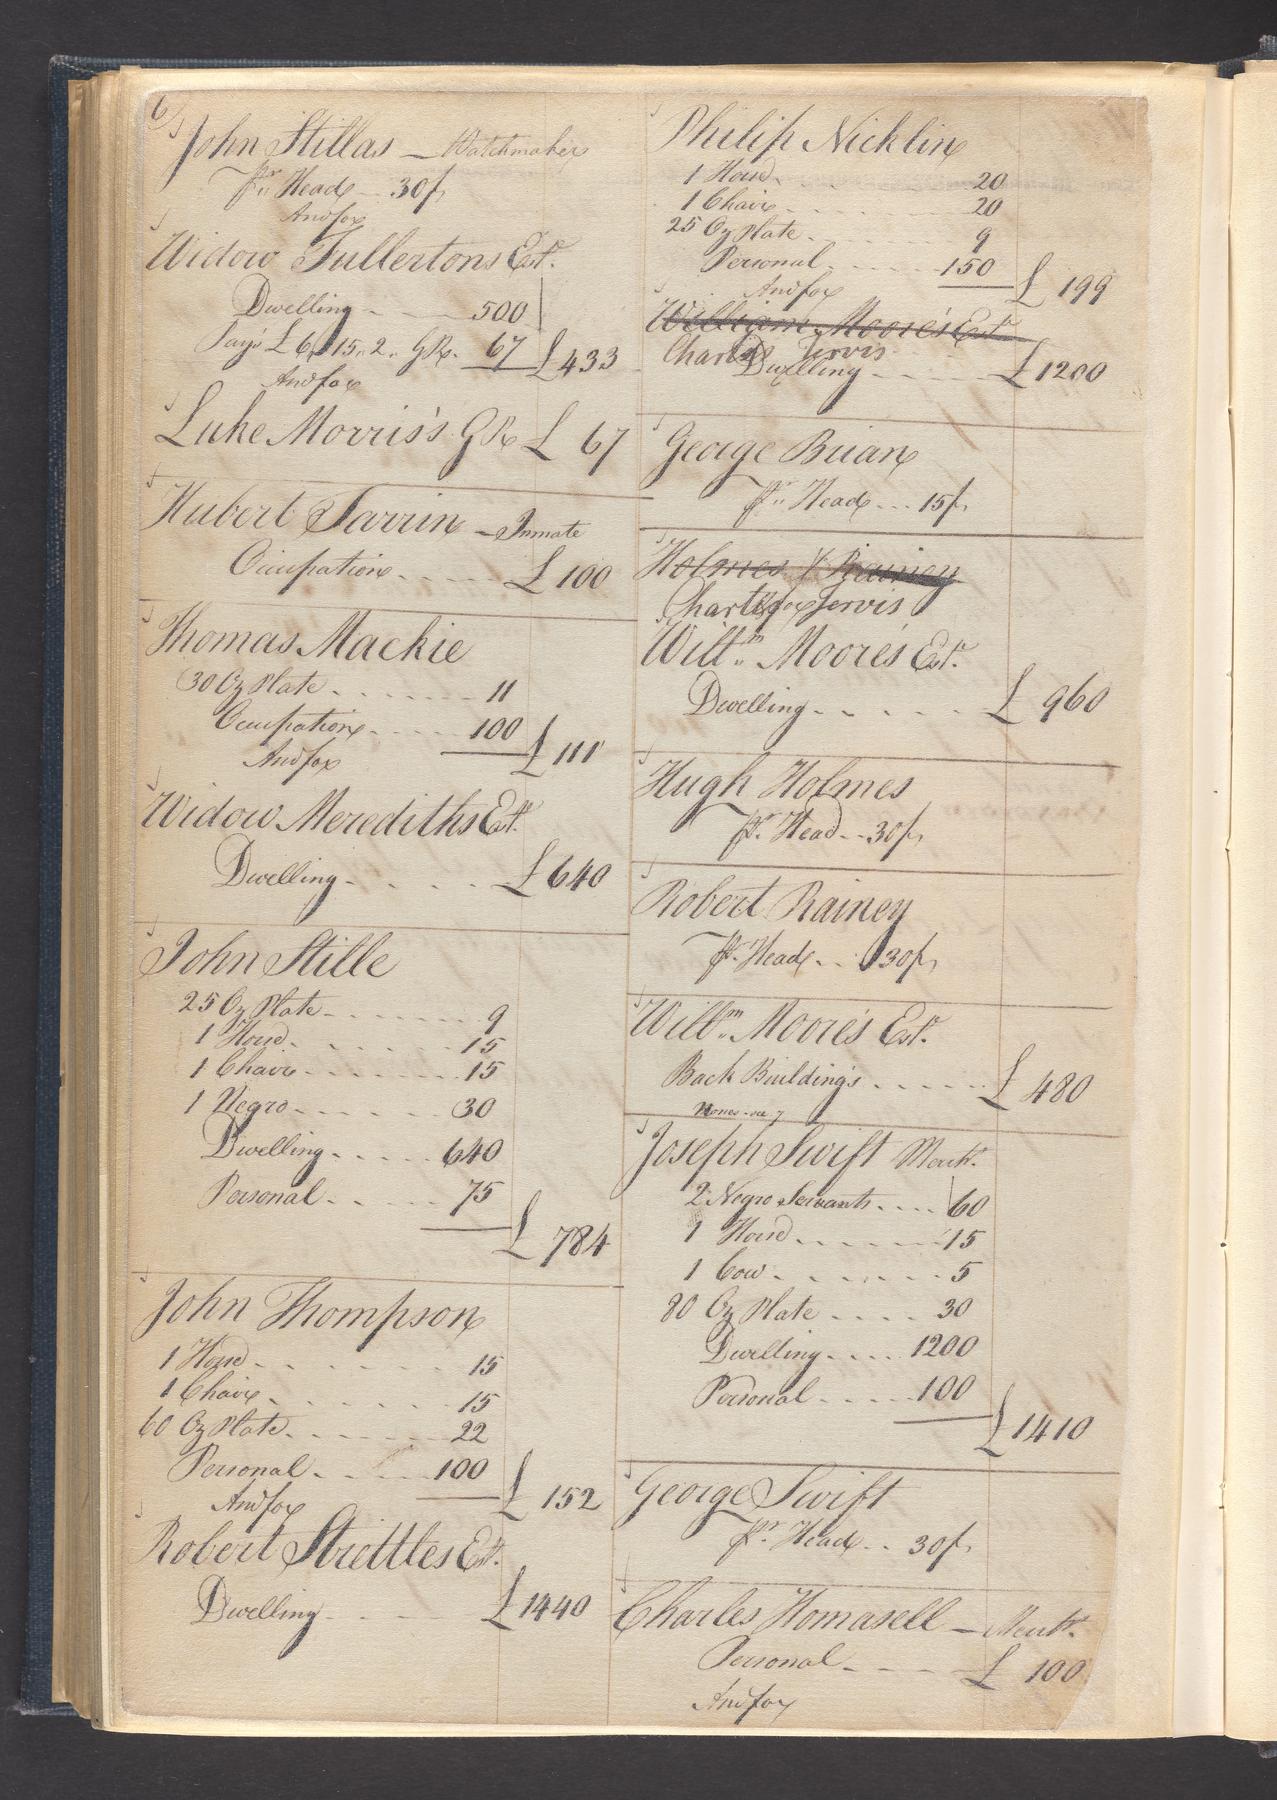 6
John Stillas – Watchmaker
pr. Head 30/,
And for
Widow Fullertons Est.
Dwelling - 500
Pays £ 6,, 15,, 2,, GR. 67 £433
And for
Luke Morris's GR £ 67
Hubert Tarrin – Inmate
Occupation . . . . £100
Thomas Mackie
30 Oz Plate . . . . . . 11
Occupation . . . . 100
£111
And for
Widow Merediths Est.
Dwelling - . . . . £640
John Stille
25 Oz Plate . . . . . . 9
1 Horse . . . . . 15
1 Chair . . . . . . 15
1 Negro . . . . . 30
Dwelling . . . . . 640
Personal . . . . 75
£ 784
John Thompson
1 Horse . . . . . . 15
1 Chair . . . . . . 15
60 Oz Plate . . . . . 22
Personal . . . . 100
£ 152
And for
Robert Strettles Est.
Dwelling - £1440
Philip Nicklin
1 Horse . . . . . 20
1 Chair . . . . . 20
25 Oz Plate . . . . . 9
Personal . . . . 150
£ 199
And for
William Moore's Est.
Charles Jervis
Dwelling - £1200
George Brian
pr. Head . . . 15/,
Holmes & Rainey
Charles Jervis
for
Willm. Moores Est.
Dwelling - . . . . £ 960
Hugh Holmes
pr. Head . . 30/,
Robert Rainey
pr. Head . . 30/,
Willm. Moores Est.
Back Building's . . . . . £ 480
Joseph Swift Mercht.
2 Negro Servants . . . . 60
1 Horse . . . . . . 15
1 Cow . . . . . . 5
80 Oz Plate . . . . 30
Dwelling . . . . 1200
Personal . . . . 100
£1410
George Swift
pr. Head . . 30/,
Charles Homasell – Mercht.
Personal - £ 100
And for